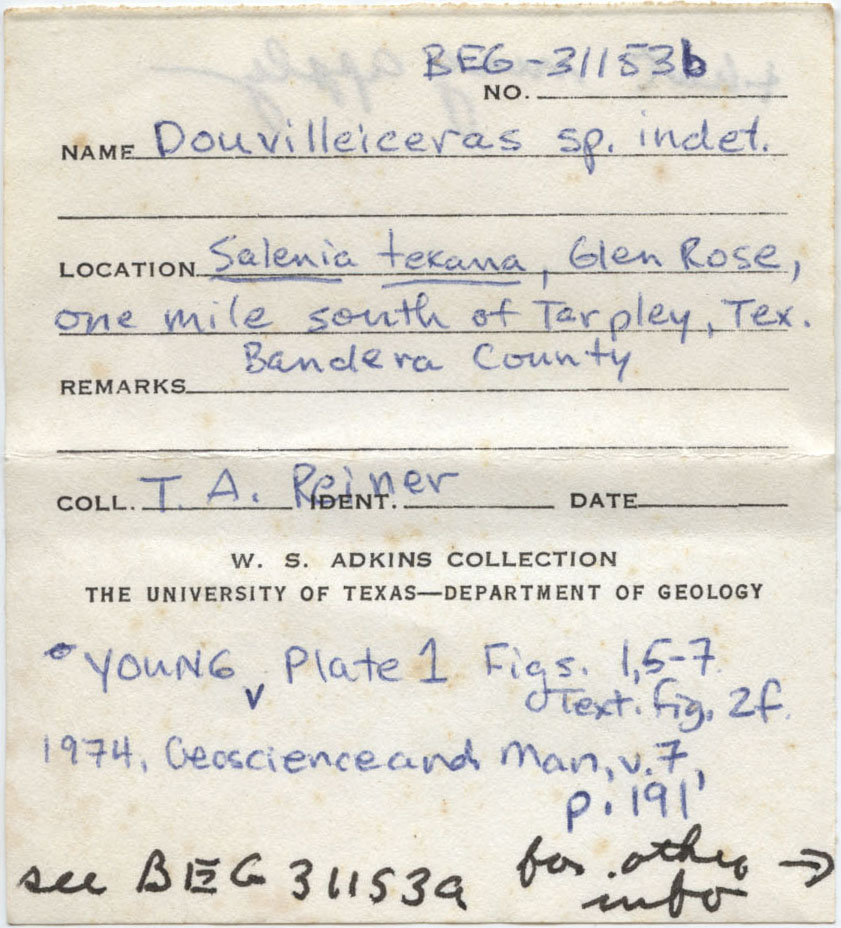 BEG-31153b
NO.
NAME Douvilleiceras sp. indet.
LOCATION Salenia texana, Glen Rose,
one mile south of Tarpley, Tex.
Bandera County
REMARKS
COLL. T. A. Reiner IDENT. DATE
W. S. ADKINS COLLECTION
THE UNIVERSITY OF TEXAS—DEPARTMENT OF GEOLOGY
YOUNG, Plate 1 Figs. 1,5-7
Text. fig. 2f.
1974, Geoscience and Man, v.7,
p. 191
see BEG 31153a for other →
info